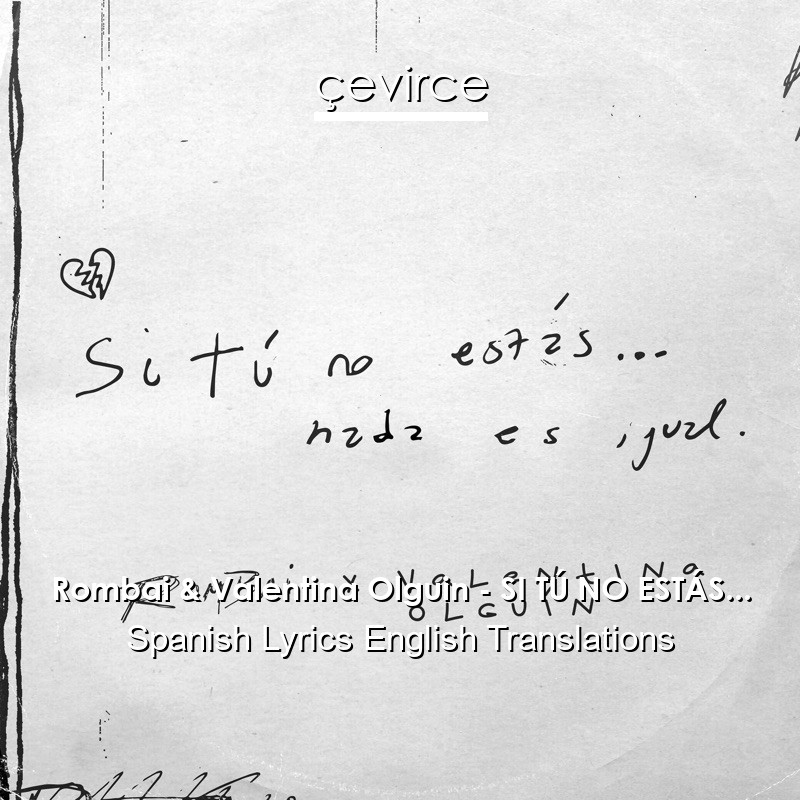 çevirce
Si tú no estás...
nada es igual.
Rombai y Valentina
Olguín
Rombai & Valentina Olguín - SI TÚ NO ESTÁS...
Spanish Lyrics English Translations